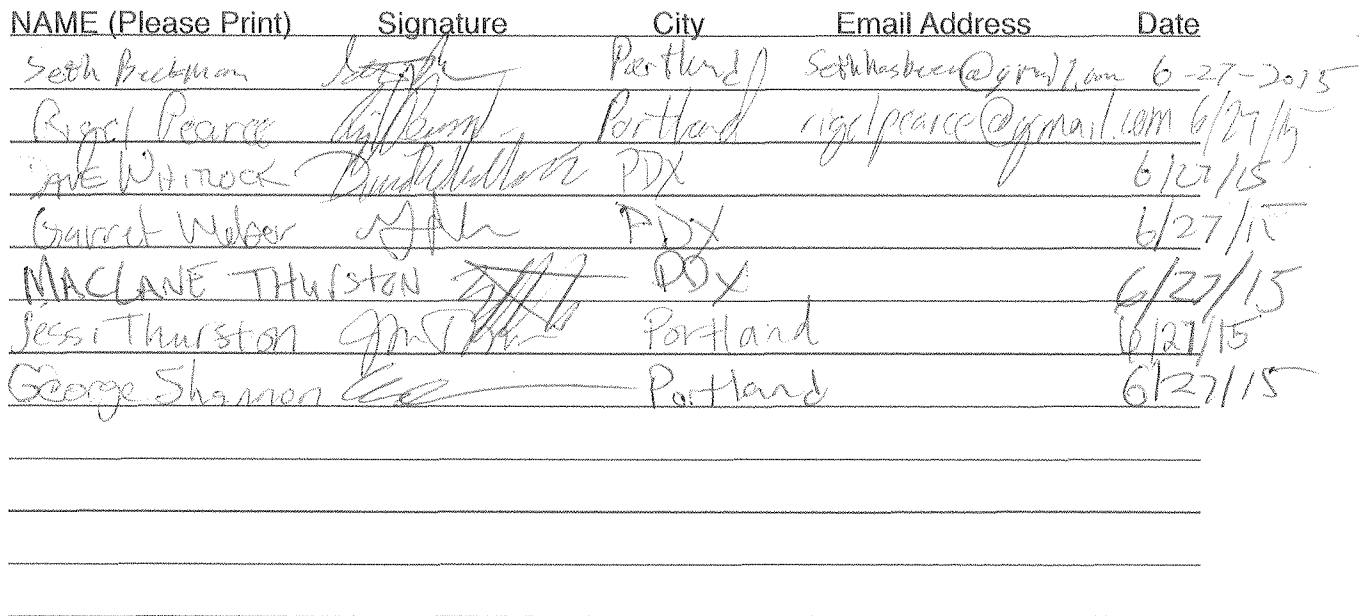 NAME (Please Print) Signature City Email Address Date
Seth Beckman Portland 6-27-2015
Rigel Pearce Portland rigelpearce@gmail.com 6/27/15
DAVE WHITLOCK PDX 6/27/15
Garret PDX 6/27/15
MACLANE THURSTON PDX 6/27/15
Jessi Thurston Portland 6/27/15
George Shannon Portland 6/27/15